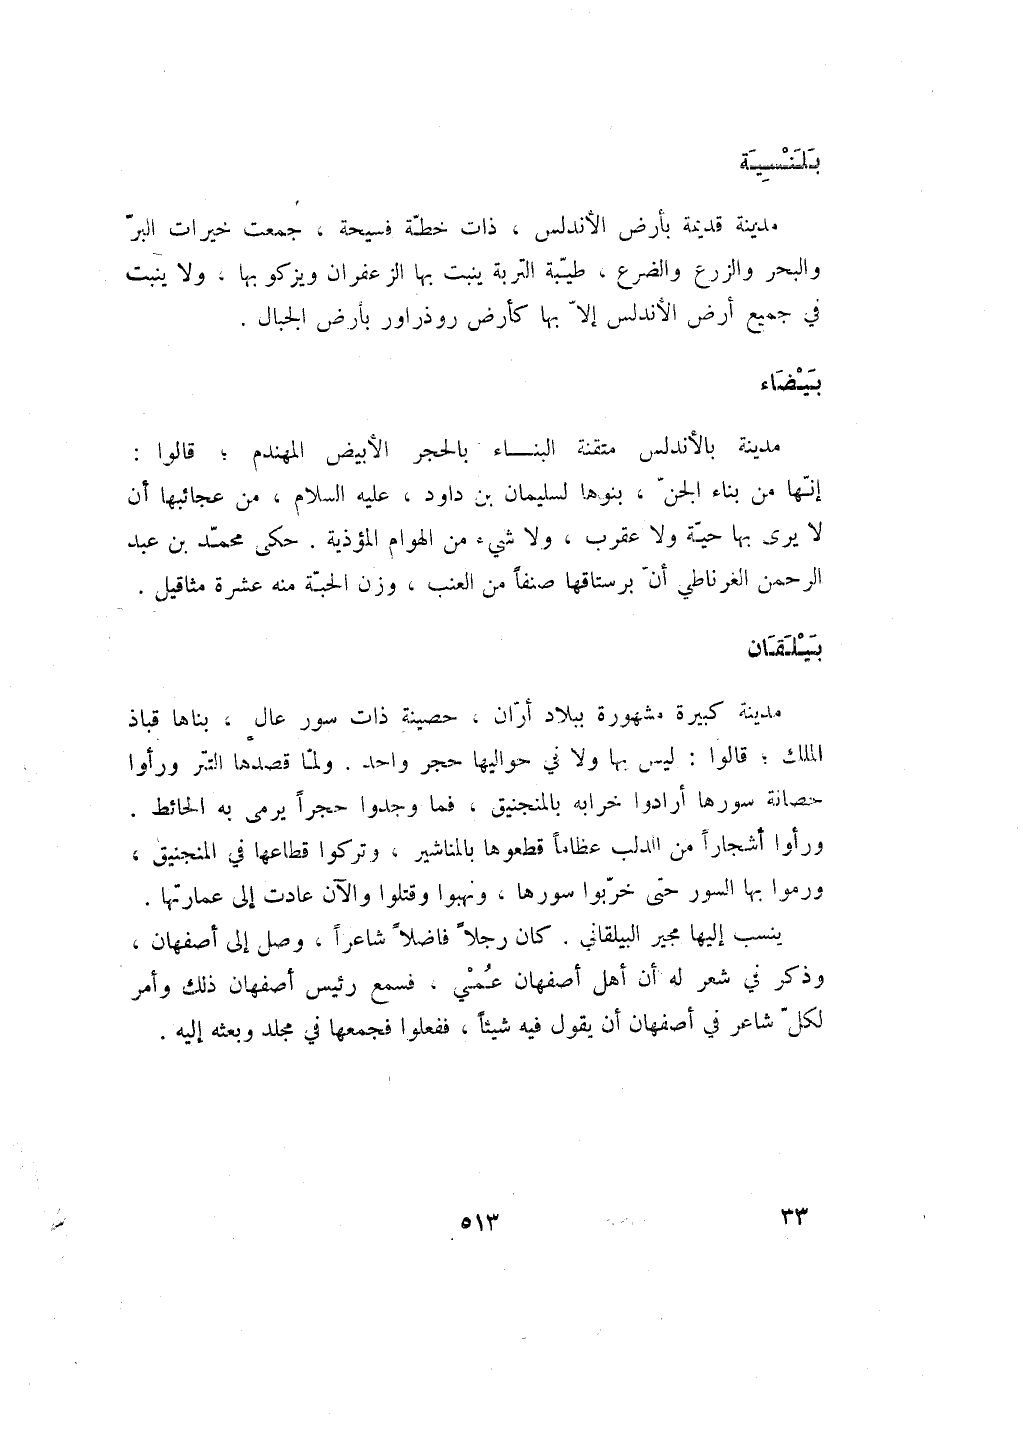 بَلَنْسِيَة
مدينة قديمة بأرض الأندلس ، ذات خطّة فسيحة ، جمعت خيرات البرّ
والبحر والزرع والضرع ، طيّبة التربة ينبت بها الزعفران ويزكو بها ، ولا ينبت
في جميع أرض الأندلس إلاّ بها كأرض روذراور بأرض الجبال .
بَيْضَاء
مدينة بالأندلس متقنة البنـــاء بالحجر الأبيض المهندم ؛ قالوا :
إنّها من بناء الجنّ ، بنوها لسليمان بن داود ، عليه السلام ، من عجائبها أن
لا يرى بها حيّة ولا عقرب ، ولا شيء من الهوام المؤذية . حكى محمّد بن عبد
الرحمن الغرناطي أنّ برستاقها صنفاً من العنب ، وزن الحبّة منه عشرة مثاقيل .
بَيْلَقَان
مدينة كبيرة مشهورة ببلاد أرّان ، حصينة ذات سور عالٍ ، بناها قباذ
الملك ؛ قالوا : ليس بها ولا في حواليها حجر واحد . ولمّا قصدها التتر ورأوا
حصانة سورها أرادوا خرابه بالمنجنيق ، فما وجدوا حجراً يرمى به الحائط .
ورأوا أشجاراً من الدلب عظاماً قطعوها بالمناشير ، وتركوا قطاعها في المنجنيق ،
ورموا بها السور حتّى خرّبوا سورها ، ونهبوا وقتلوا والآن عادت إلى عمارتها .
ينسب إليها مجير البيلقاني . كان رجلاً فاضلاً شاعراً ، وصل إلى أصفهان ،
وذكر في شعر له أن أهل أصفهان عُمْي ، فسمع رئيس أصفهان ذلك وأمر
لكلّ شاعر في أصفهان أن يقول فيه شيئاً ، ففعلوا فجمعها في مجلد وبعثه إليه .
٣٣
٥١٣